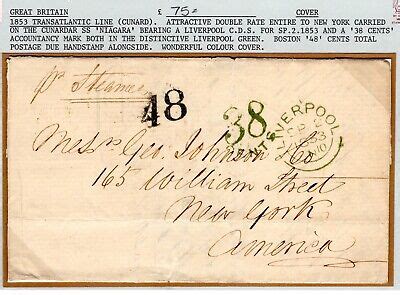 GREAT BRITAIN £ 75= COVER
1853 TRANSATLANTIC LINE (CUNARD). ATTRACTIVE DOUBLE RATE ENTIRE TO NEW YORK CARRIED
ON THE CUNARDAR SS 'NIAGARA' BEARING A LIVERPOOL C.D.S. FOR SP.2.1853 AND A '38 CENTS'
ACCOUNTANCY MARK BOTH IN THE DISTINCTIVE LIVERPOOL GREEN. BOSTON '48' CENTS TOTAL
POSTAGE DUE HANDSTAMP ALONGSIDE. WONDERFUL COLOUR COVER.
pr Steamer
48
38
CENTS
LIVERPOOL
Messrs Geo. Johnson & Co
165 William Street
New York
America